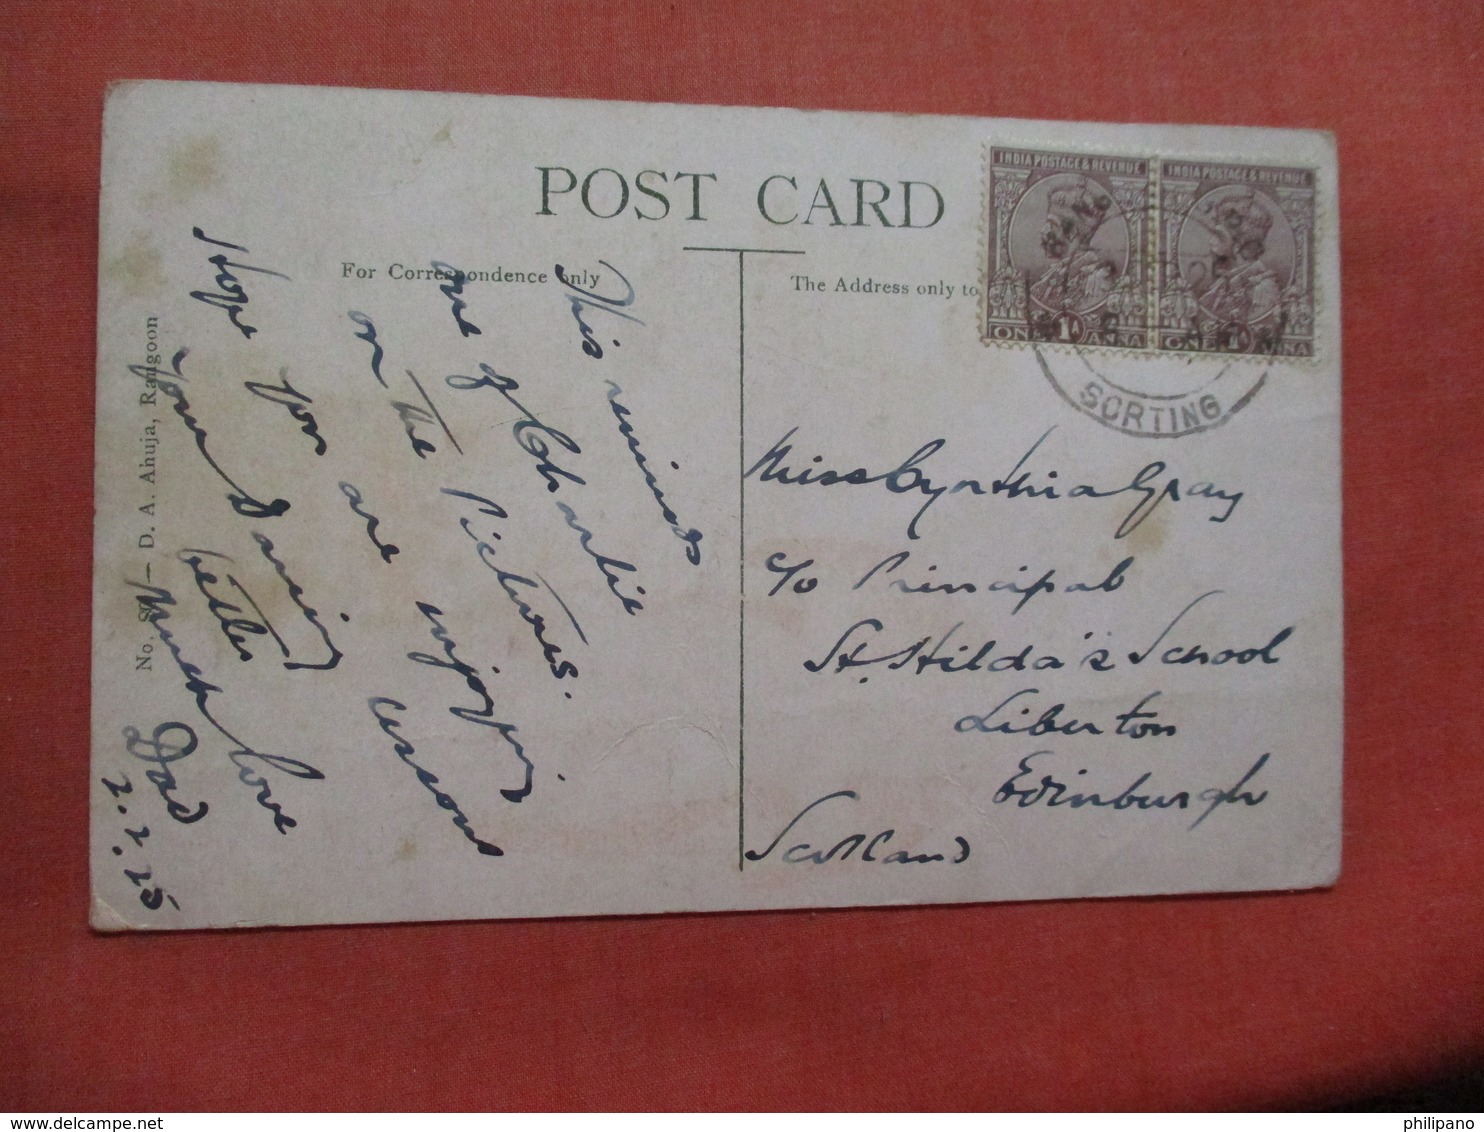 POST CARD
For Correspondence only
The Address only to
INDIA POSTAGE & REVENUE
INDIA POSTAGE & REVENUE
ONE 1A ANNA
ONE 1A ANNA
SORTING
This reminds
one of Charlie
on the Pictures.
Hope you are enjoying
your Dancing lessons
better
Much love
Dad
2.2.25
Miss Cynthia Gray
c/o Principal
St. Hilda's School
Liberton
Edinburgh
Scotland
D. A. Ahuja, Rangoon
philipano